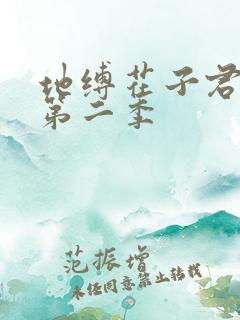 地缚茌子君
第二季
范振增
未经同意禁止转载